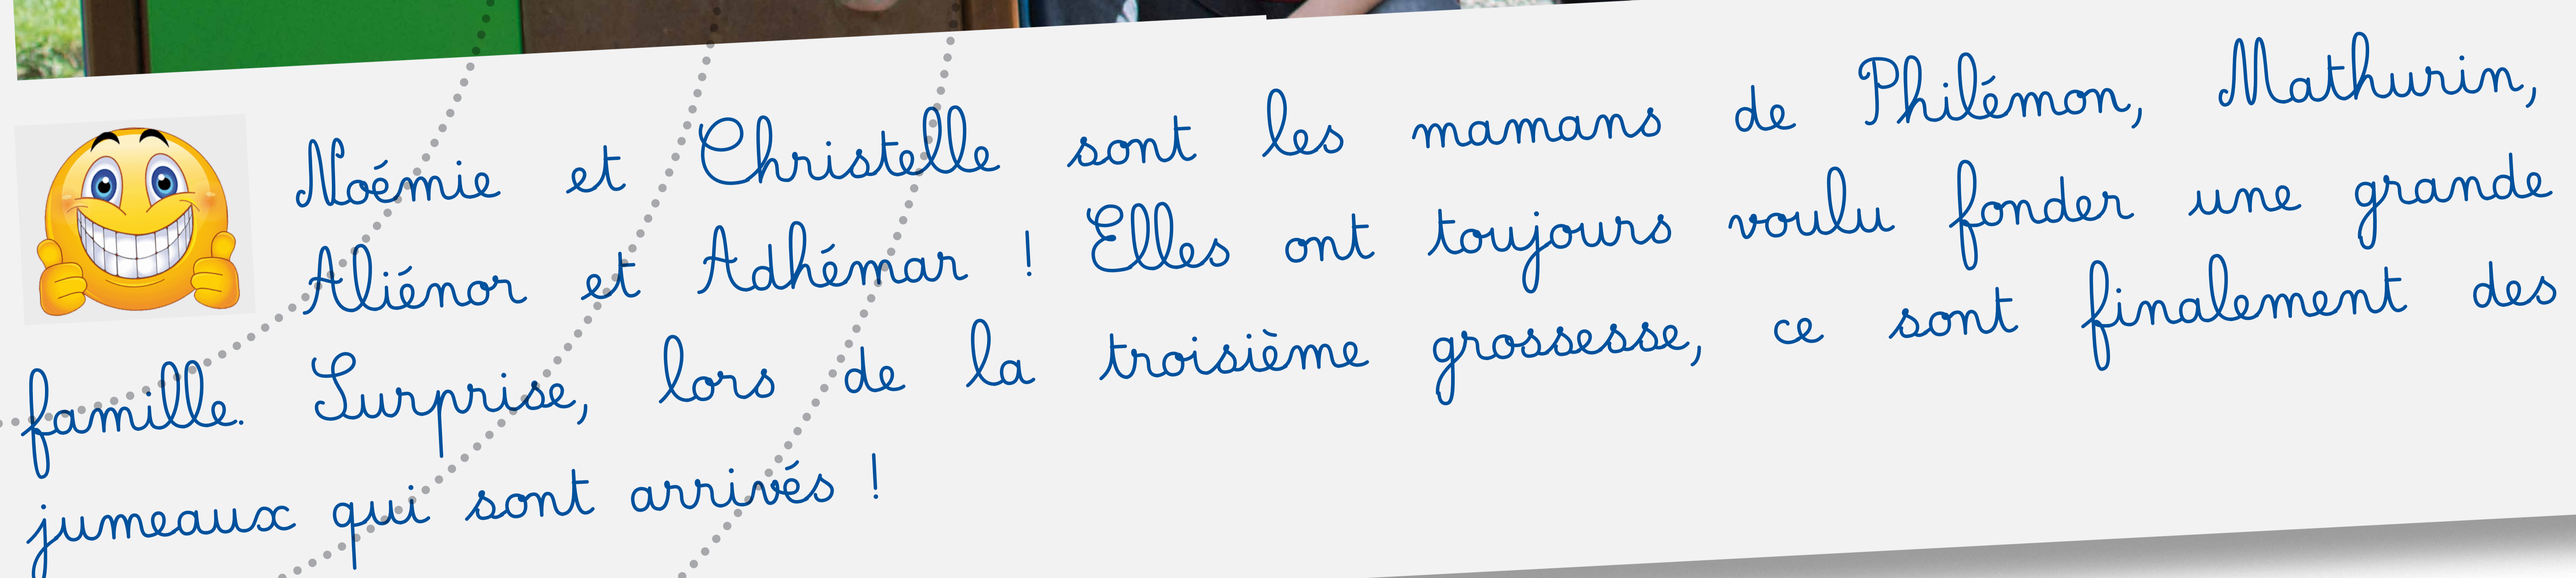 Noémie et Christelle sont les mamans de Philémon, Mathurin,
Aliénor et Adhémar ! Elles ont toujours voulu fonder une grande
famille. Surprise, lors de la troisième grossesse, ce sont finalement des
jumeaux qui sont arrivés !